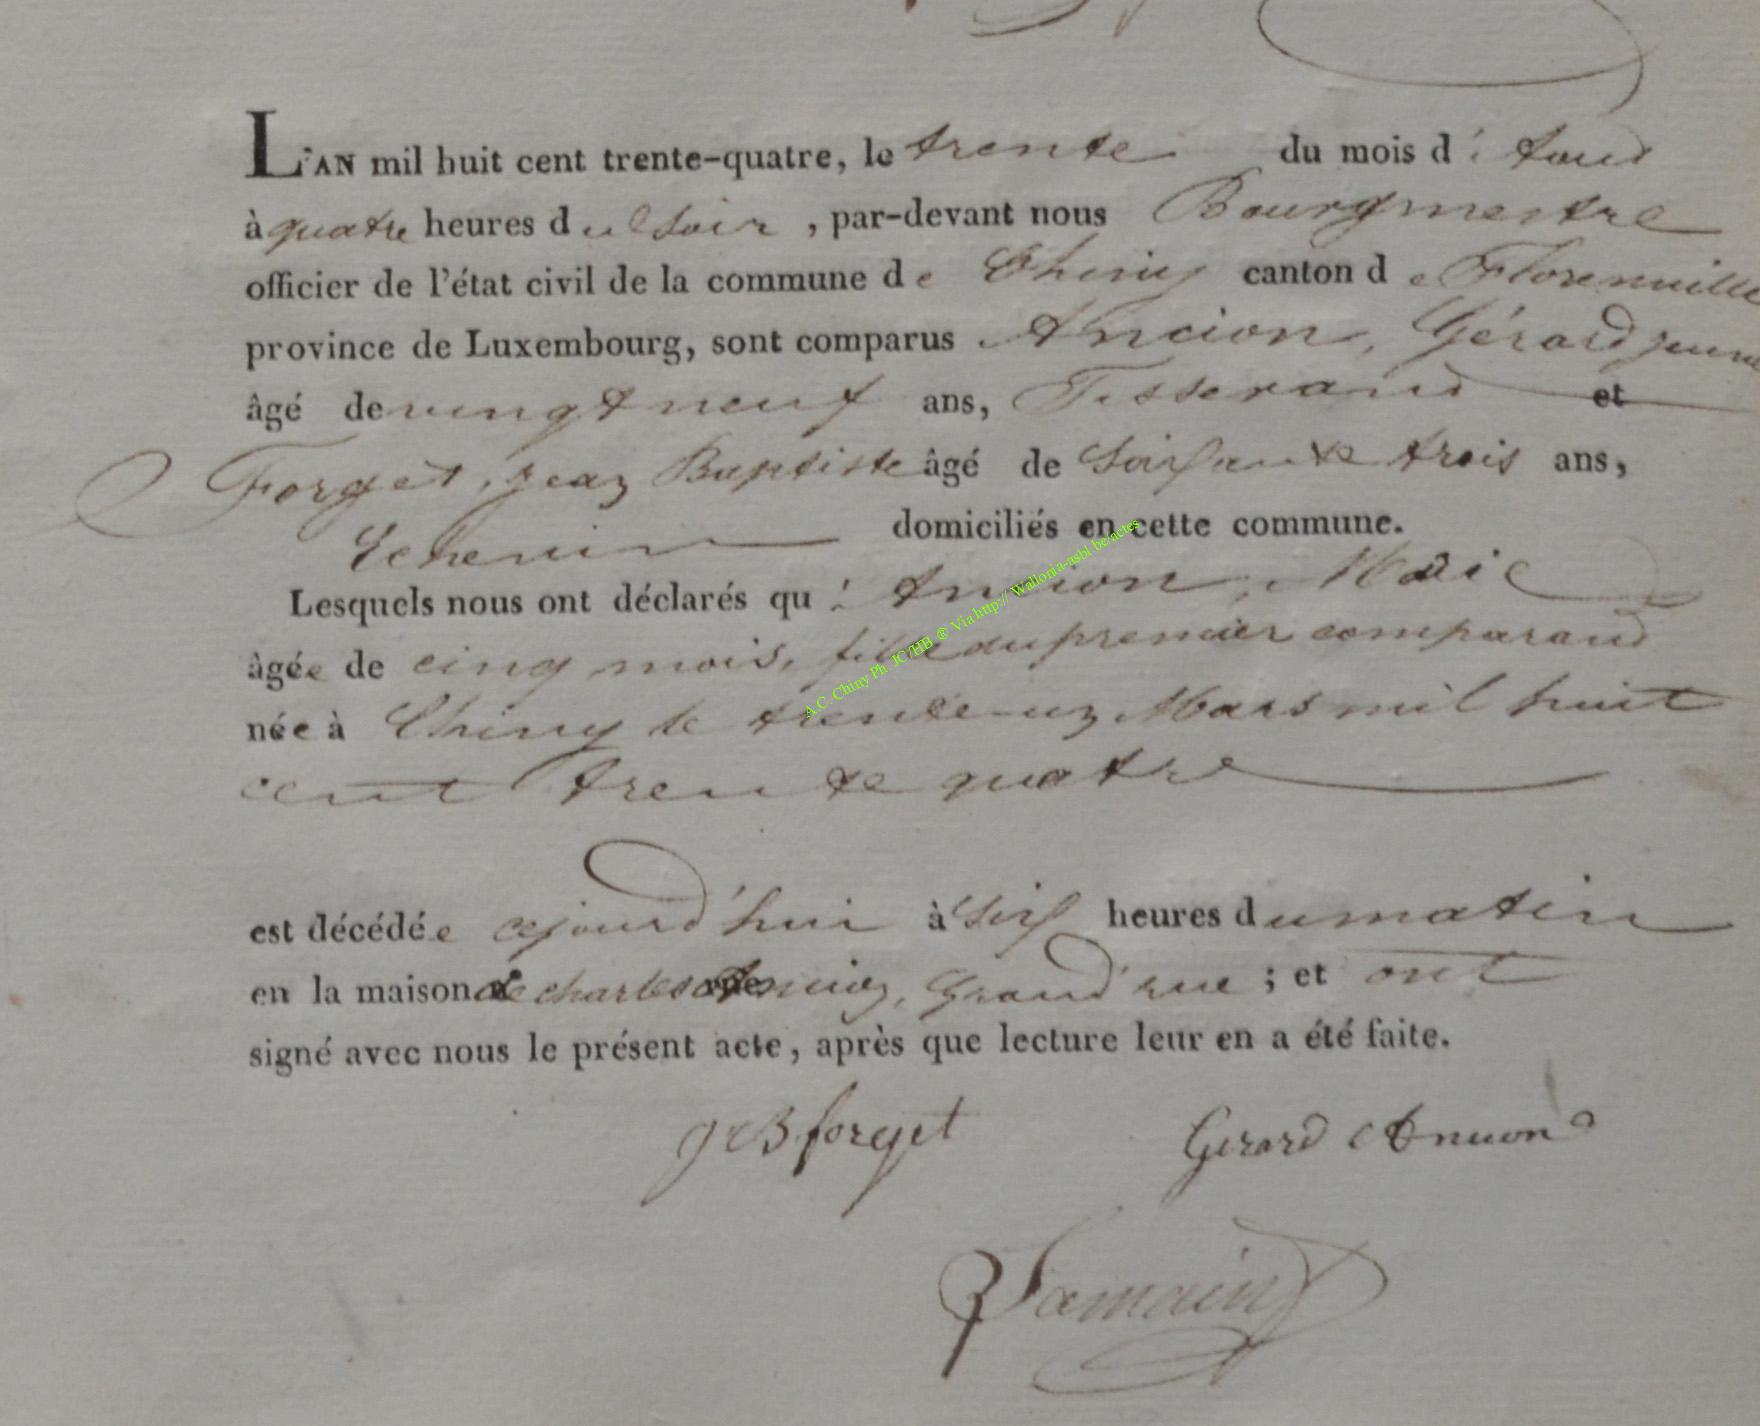 L'AN mil huit cent trente-quatre, le trente du mois d'Aout
à quatre heures du Soir, par-devant nous Bourgmestre
officier de l'état civil de la commune de Chiny canton de Florenville
province de Luxembourg, sont comparus Ancion, Gérard jeune
âgé de vingt neuf ans, Tisserand et
Forget, jean Baptiste âgé de Soixante trois ans,
Echevin domiciliés en cette commune.
Lesquels nous ont déclarés qu'Ancion, Marie
âgée de cinq mois, fille du premier comparand
née à Chiny le trente-un Mars mil huit
cent trente quatre
est décédée cejourd'hui à Six heures du matin
en la maison de charles, Grand'rue; et ont
signé avec nous le présent acte, après que lecture leur en a été faite.
JB forget Gerard Ancion
Jamain
A.C. Chiny Ph. JC/HB ® Via http:// Wallonia-asbl be/actes